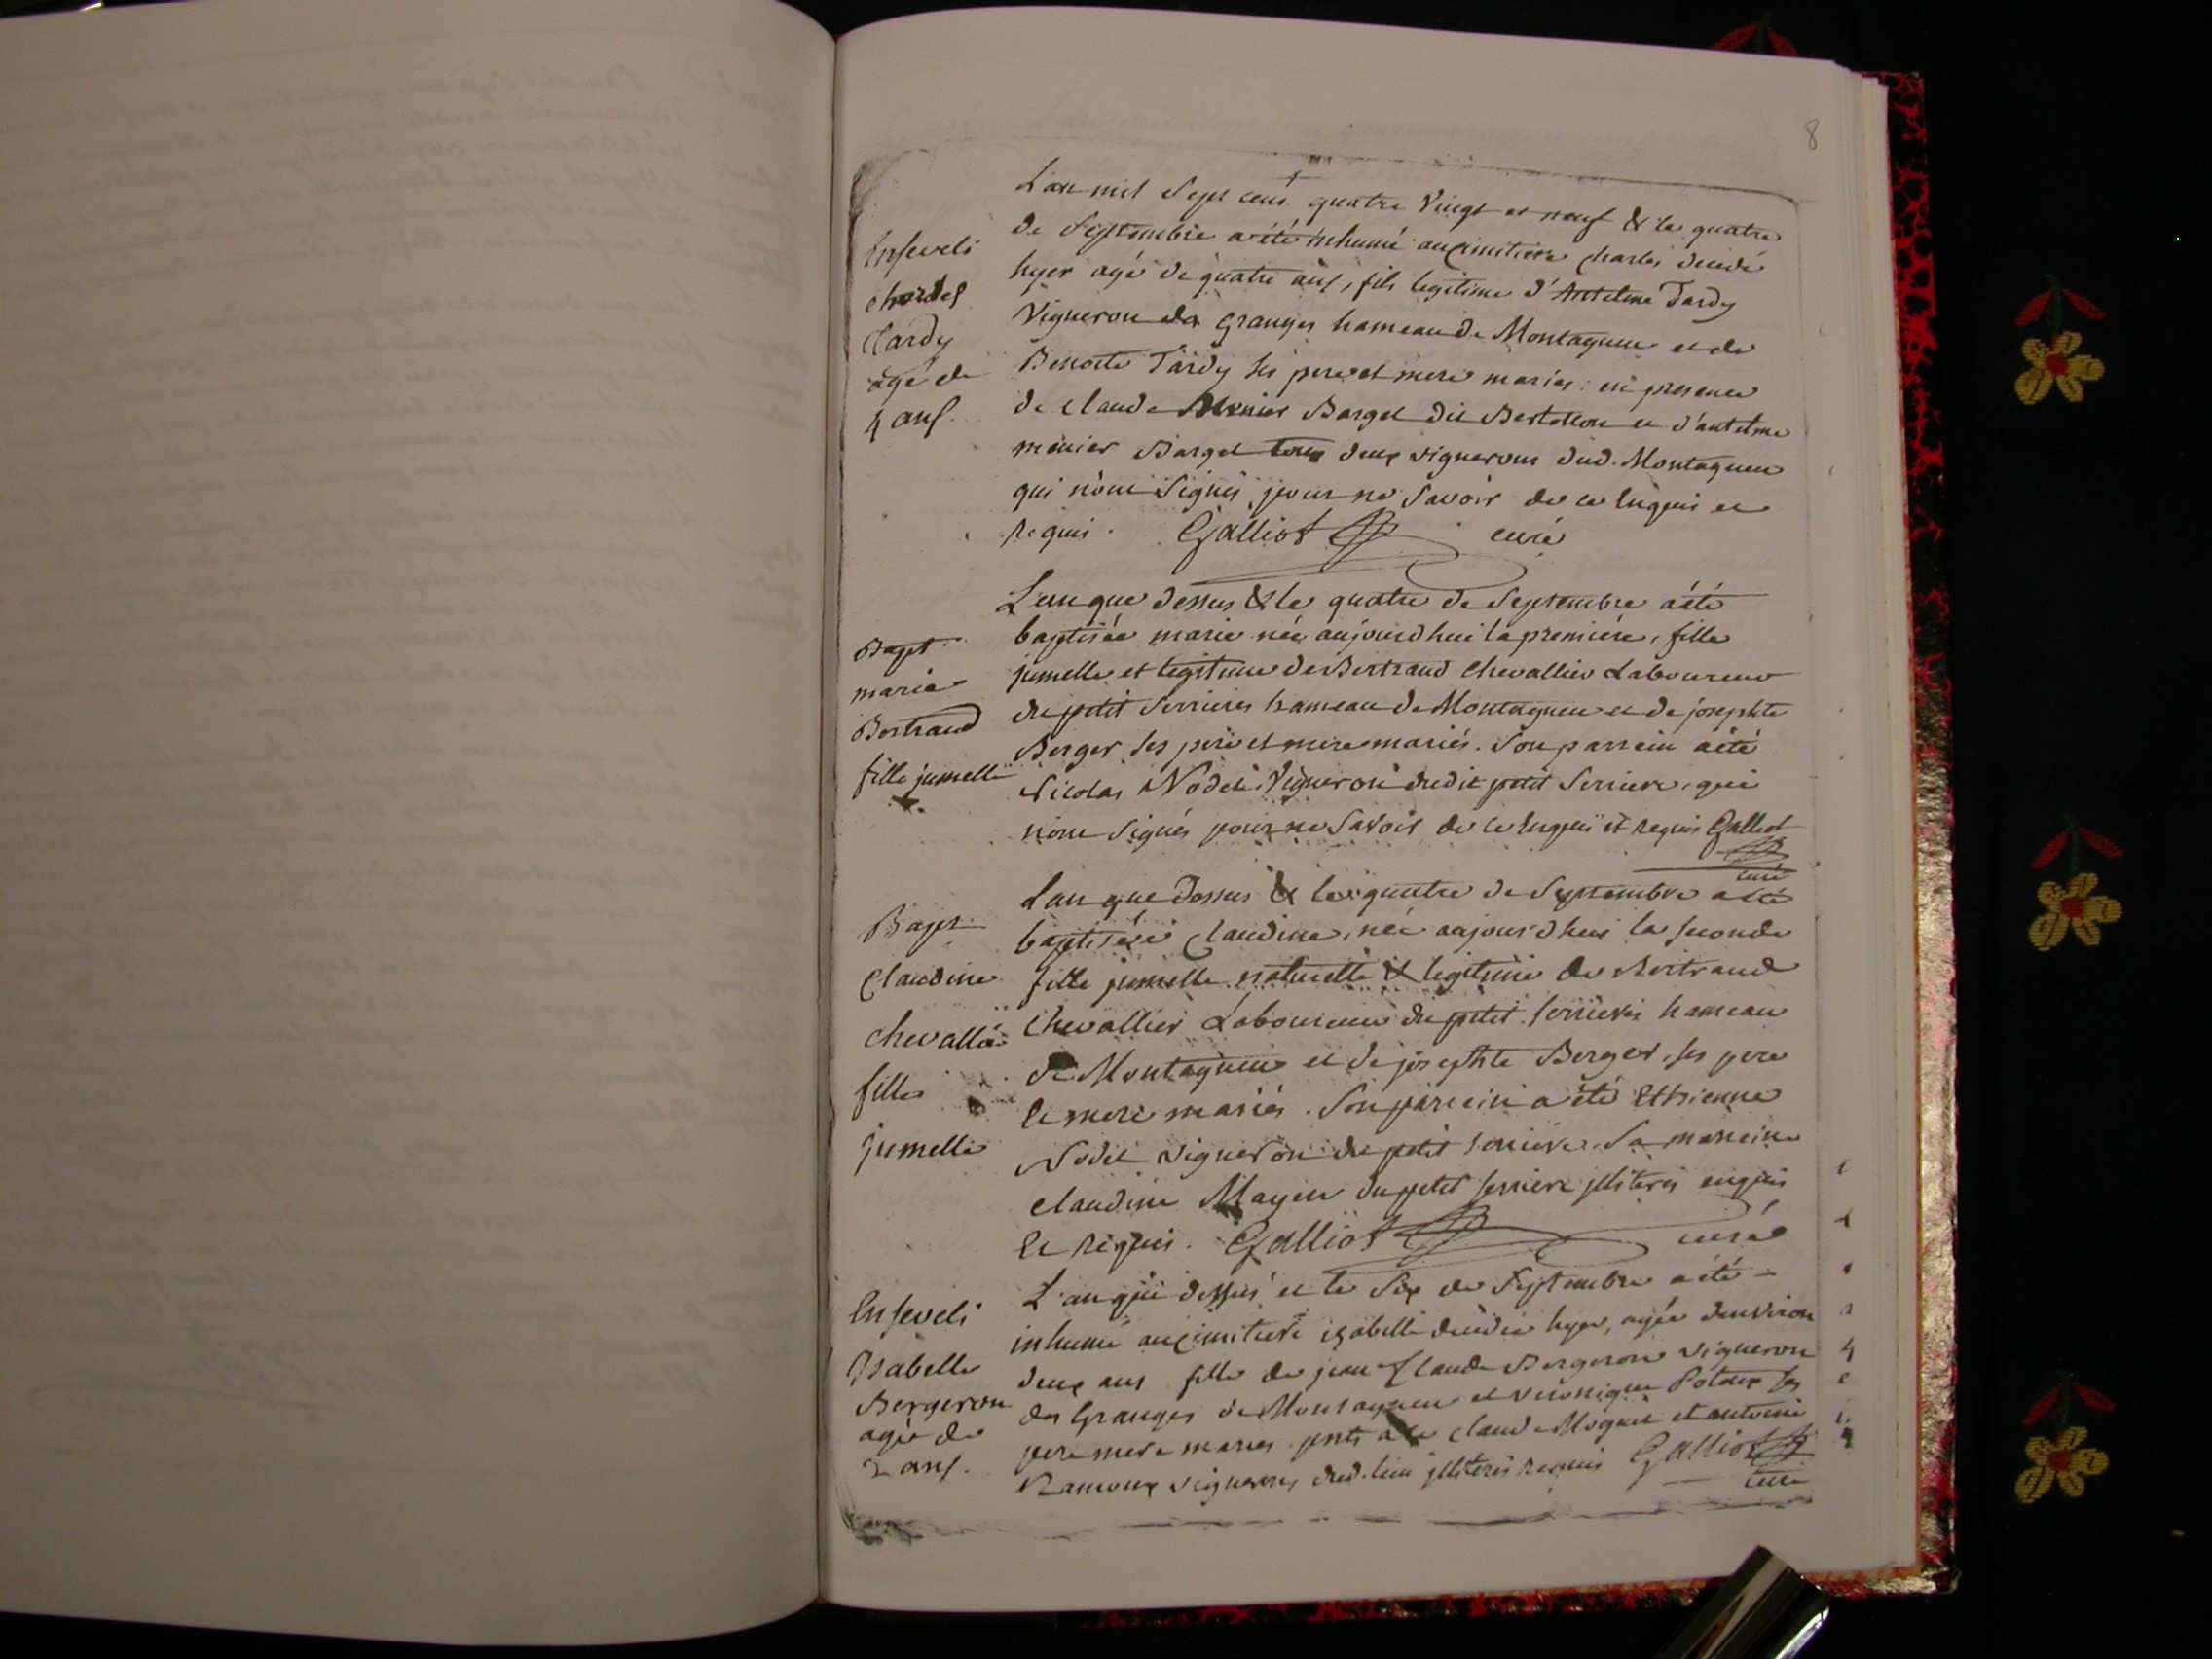 8
L'an mil sept cent quatre vingt et neuf & le quatre
de Septembre a été inhumé au cimitiere charles décédé
hyer agé de quatre ans, fils legitime d'Antelme Tardy
Vigneron des granges hameau de Montagnieu et de
Benoite Tardy ses pere et mere mariés : en presence
de claude Menier Barget dit Bertollon et d'antelme
menier Barget tous deux vignerons dud. Montagnieu
qui n'ont signés pour ne savoir de ce enquis et
requis. Galliot curé
Enseveli
charles
Tardy
âgé de
4 ans.
L'an que dessus & le quatre de Septembre a été
baptisée marie née aujourdhui la première, fille
jumelle et legitime de Bertrand Chevallier Laboureur
du petit Serrieres hameau de Montagnieu et de josephte
Berger ses père et mere mariés. Son parrein a été
Nicolas Nodet Vigneron dudit petit Serriere, qui
n'ont signés pour ne savoir de ce enquis et requis Galliot
curé
Bapt.
marie
Bertrand
fille jumelle
L'an que dessus & le quatre de Septembre a été
baptisée claudine, née aujourdhui la seconde
fille jumelle naturelle & legitime de Bertrand
Chevallier Laboureur du petit Serrieres hameau
de Montagnieu et de josephte Berger, ses pere
et mere mariés. Son parrein a été Ethienne
Nodet vigneron du petit serriere. Sa marreine
claudine Mayeu du petit serriere jlliterés enquis
et requis. Galliot curé
Bapt.
Claudine
chevallier
fille
jumelle
L'an que dessus et le six de Septembre a été
inhumé au cimitiere izabelle décédée hyer, agée denviron
deux ans fille de jean Claude Bergeron vigneron
des Granges de Montagnieu et véronique Potoux ses
pere mere mariés. pnts a ce claude Moguet et antoine
Ramoux vignerons dud. lieu jlliterés requis Galliot
curé
Enseveli
Isabelle
Bergeron
agée de
2 ans.